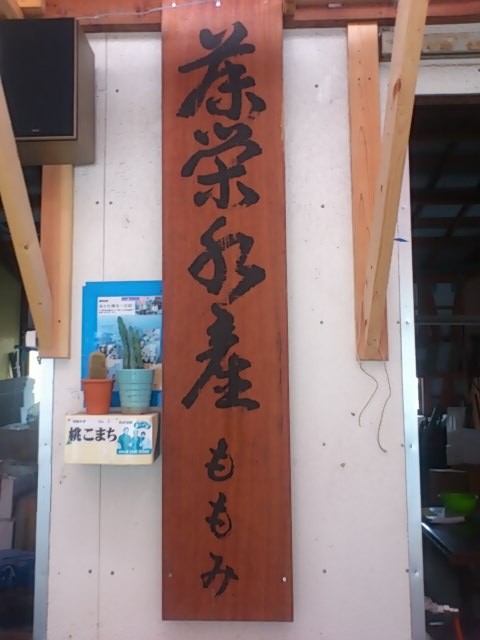 茶栄水産ももみ
桃こまち